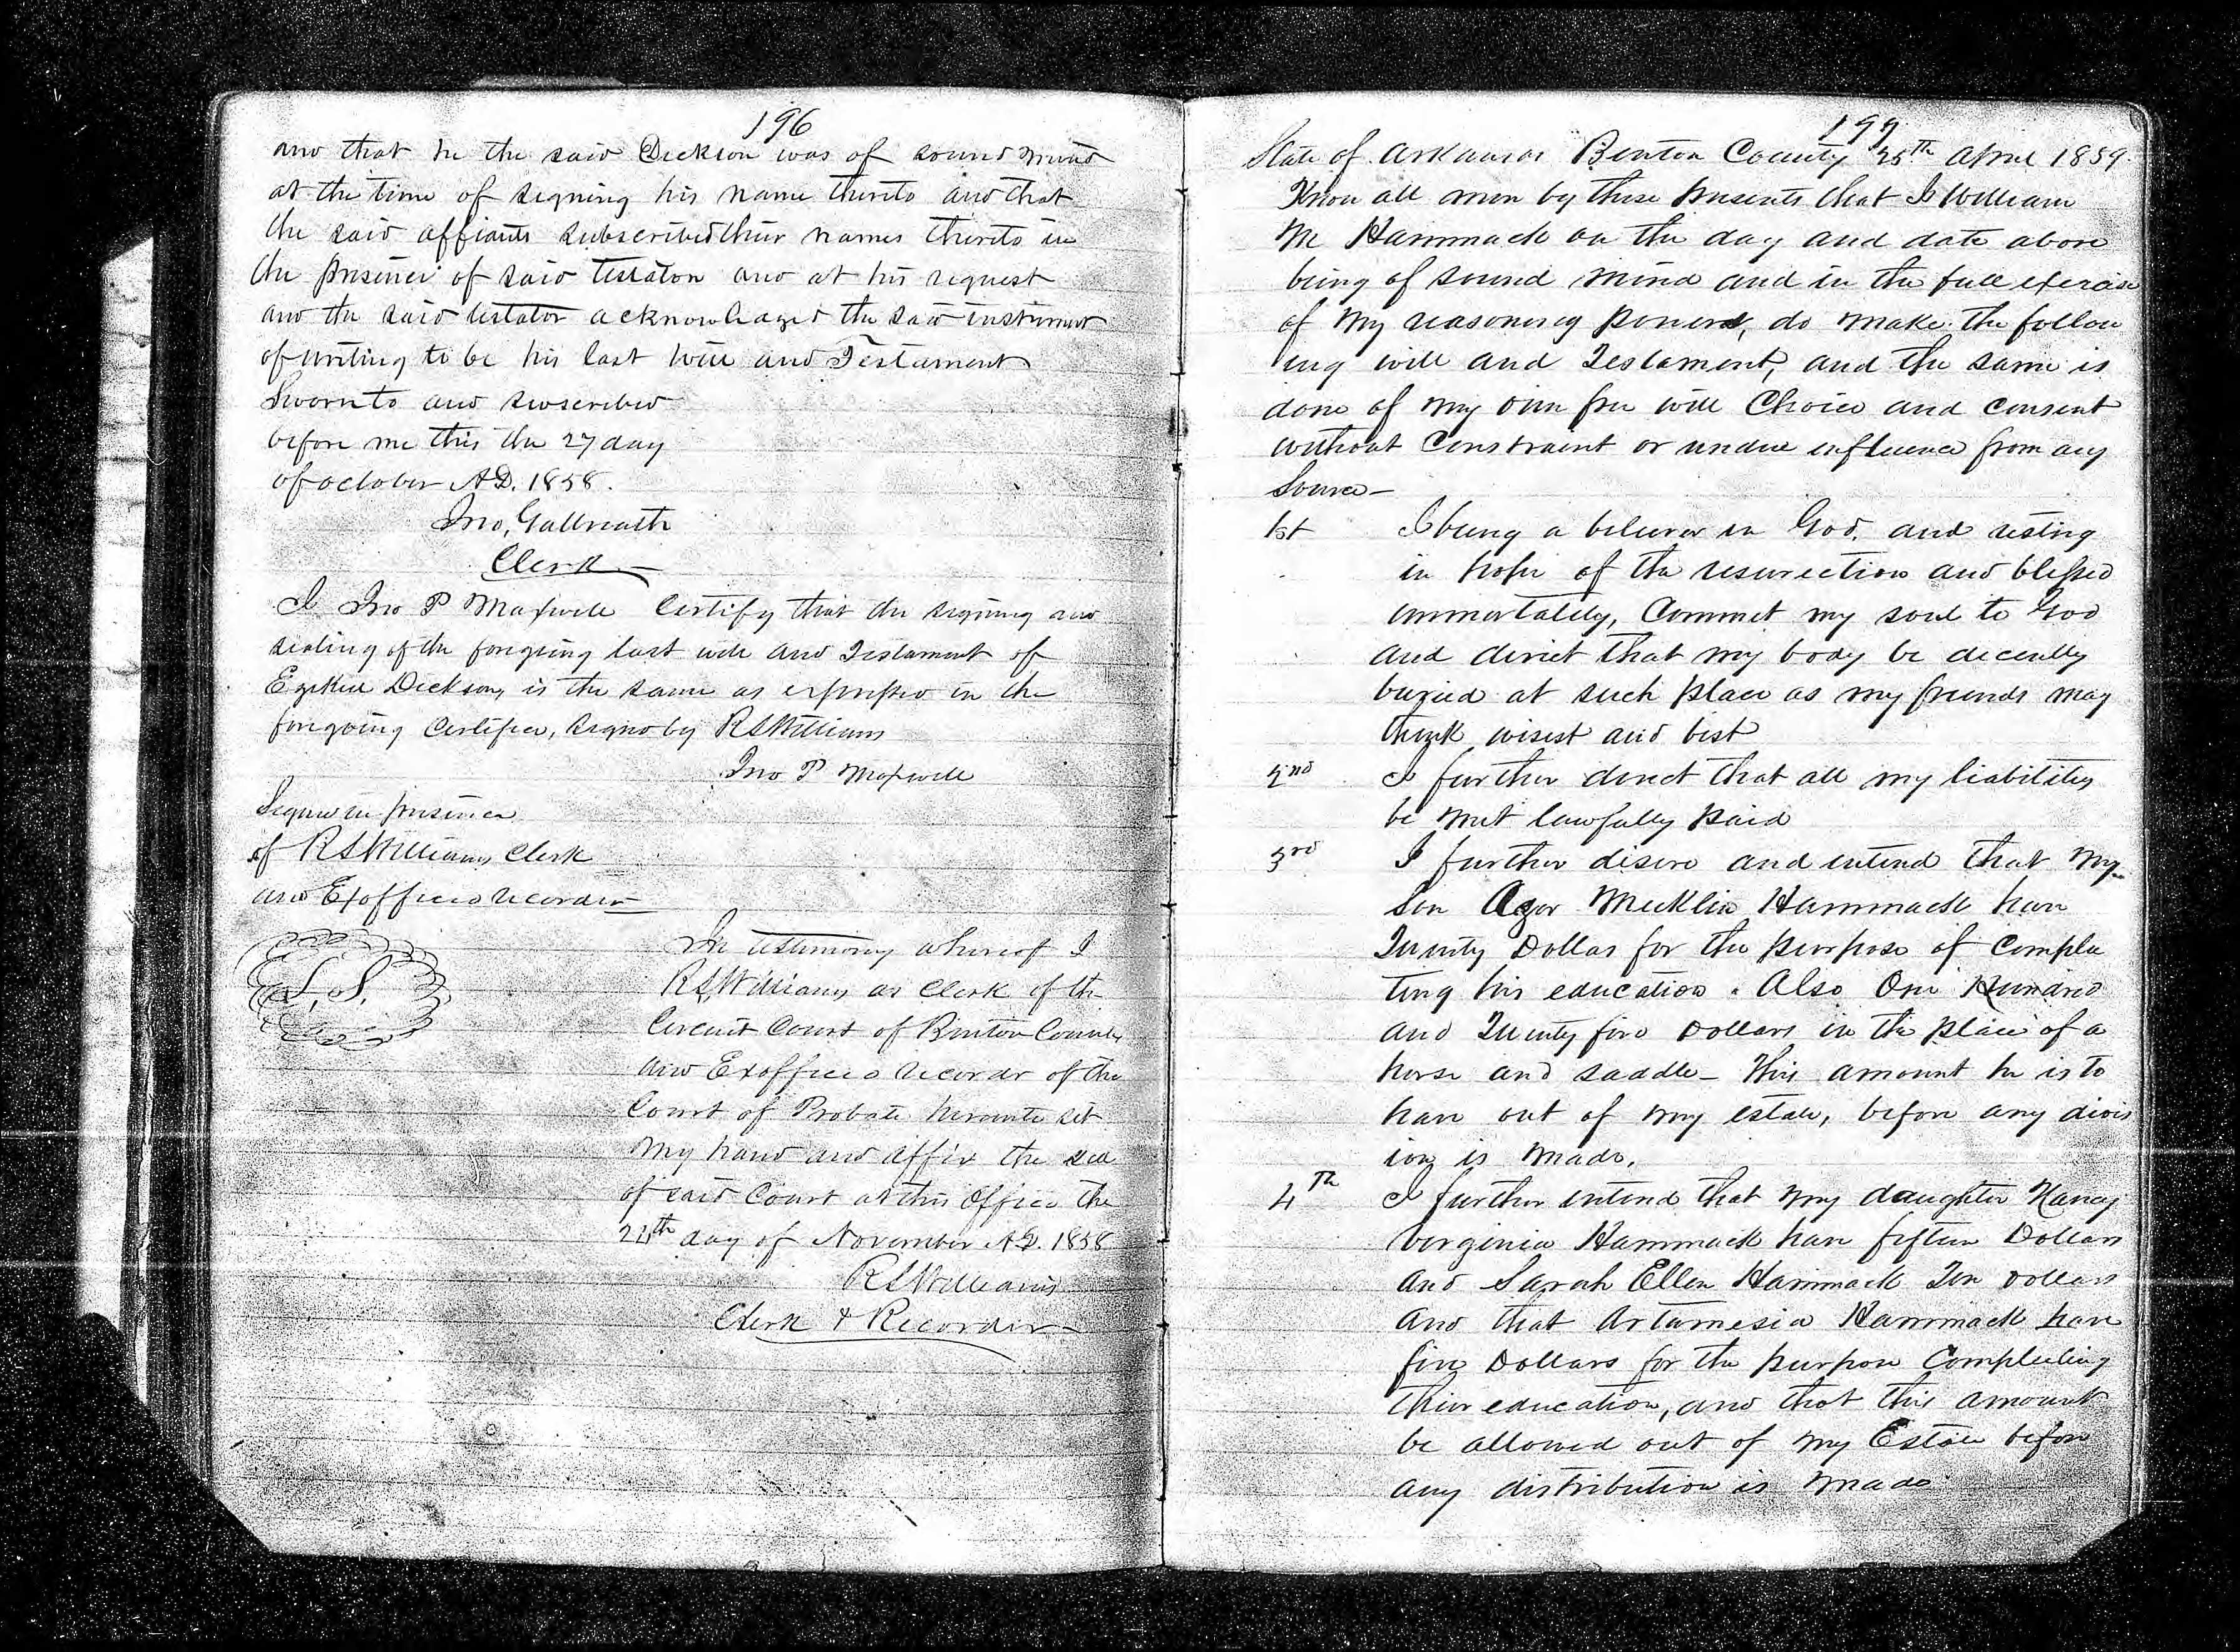 196
and that he the said Dickson was of sound mind
at the time of signing his name thereto and that
the said affiants subscribed their names thereto in
the presence of said testator and at his request
and the said testator acknowledged the said instrument
of writing to be his last will and Testament
Sworn to and suscribed
before me this the 27 day
of october A.D. 1858.
Jno, Galbreath
Clerk
I Jno P Maxwell Certify that the signing and
sealing of the foregoing last will and Testament of
Ezekiel Dickson, is the same as expressed in the
foregoing Certificate, signed by R S Williams
Jno P Maxwell
Signed in presence
of R S Williams Clerk
and Exofficio recorder
L. S.
In testimony whereof I
R S, Williams as Clerk of the
Circuit Court of Benton County
and Exofficio recorder of the
Court of Probate hereunto set
my hand and affix the seal
of said Court at this Office the
24th day of November A.D. 1858
R S Williams
Clerk & Recorder
197
State of Arkansas Benton County 25th April 1859.
Know all men by these presents that I William
M Hammack on the day and date above
being of sound mind and in the full exercise
of my reasoning powers, do make the follow
ing will and Testament, and the same is
done of my own free will Choice and consent
without Constraint or undue influence from any
Source—
1st I being a believer in God. and resting
in hope of the resurrection and blessed
immortality, Commit my soul to God
and direct that my body be decently
buried at such place as my friends may
think wisest and best
2nd I further direct that all my liabilities
be met lawfully paid
3rd I further disire and intend that my
son Azor Mecklin Hammack have
Twenty Dollars for the purpose of comple
ting his education. Also One Hundred
and Twenty five Dollars in the place of a
horse and saddle— This amount he is to
have out of my estate, before any divis
ion is made.
4th I further intend that my daughter Nancy
Virginia Hammack have fifteen Dollars
and Sarah Ellen Hammack Ten Dollars
and that Artamesia Hammack have
five Dollars for the purpose Compleeting
their education, and that this amount
be allowed out of my Estate before
any distribution is made